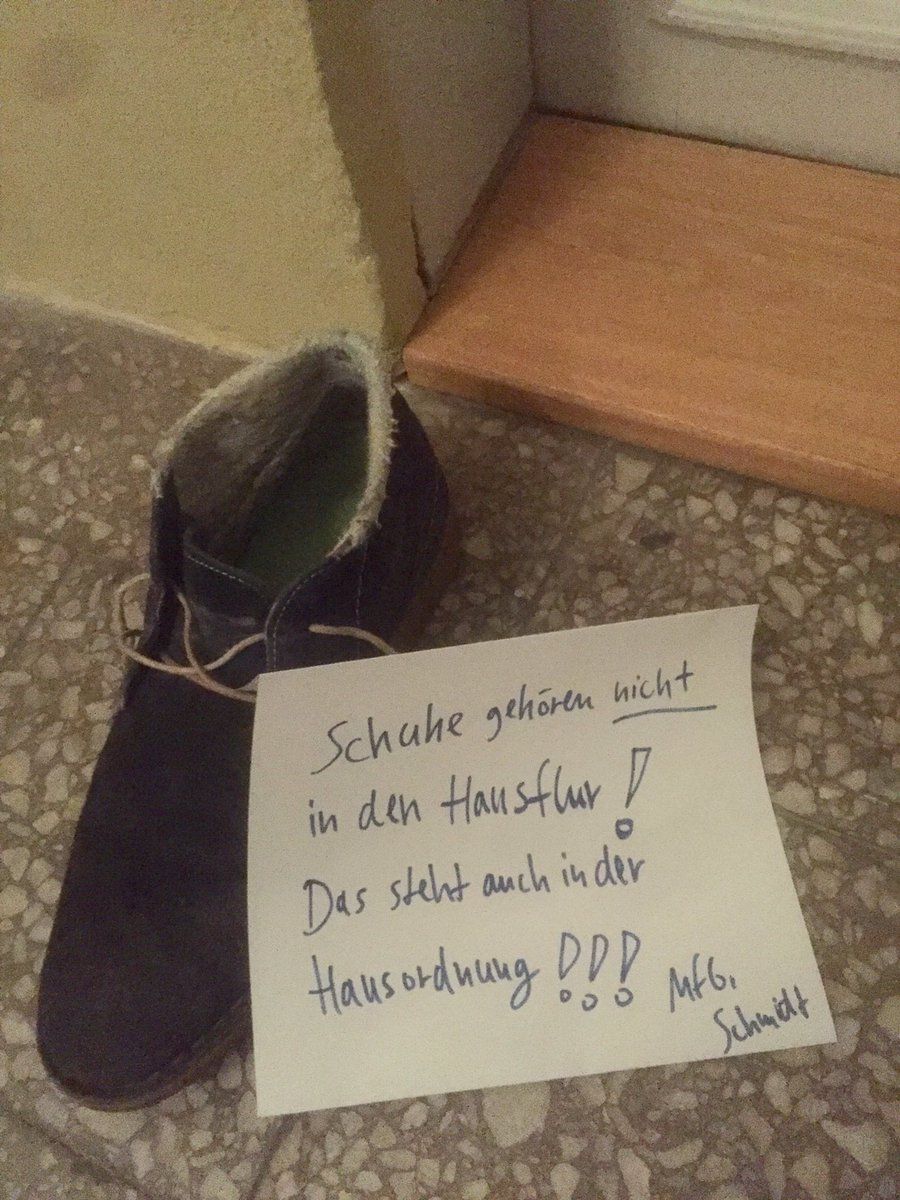 Schuhe gehören nicht
in den Hausflur!
Das steht auch in der
Hausordnung!!! MfG.
Schmidt